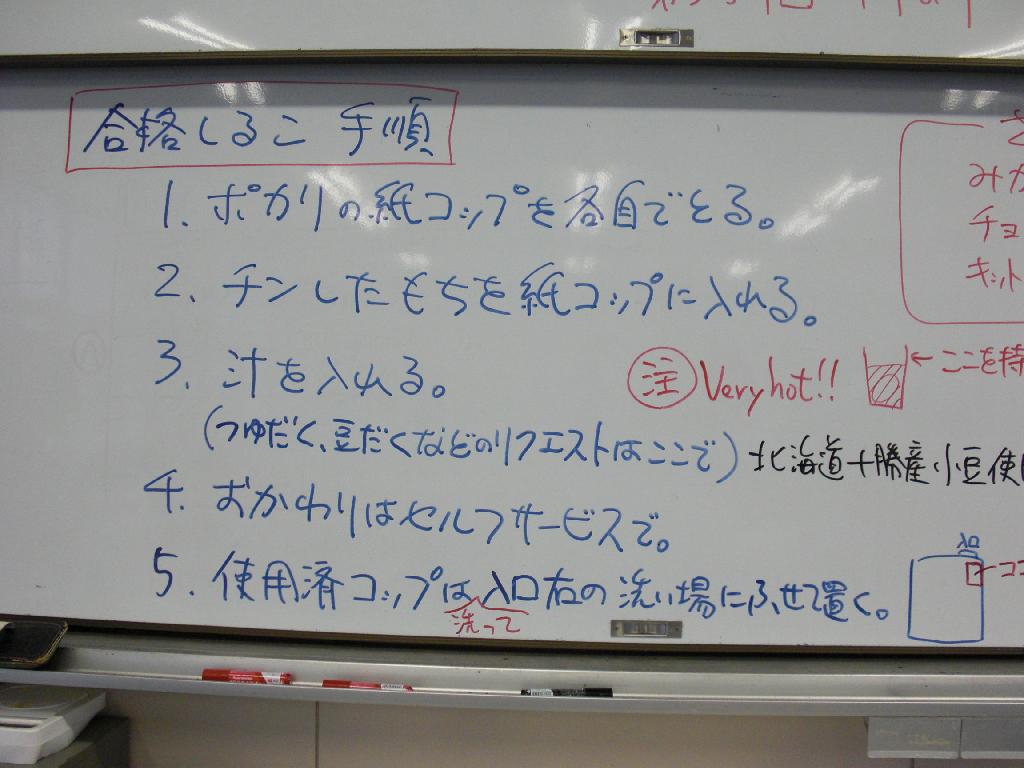 合格しるこ 手順
1. ポカリの紙コップを各自でとる。
2. チンしたもちを紙コップに入れる。
3. 汁を入れる。
注 Very hot!! ←ここを持
(つゆだく、豆だくなどのリクエストはここで)
北海道十勝産小豆使
4. おかわりはセルフサービスで。
5. 使用済コップは入口右の洗い場にふせて置く。
洗って
入口
ココ
みか
チョ
キット